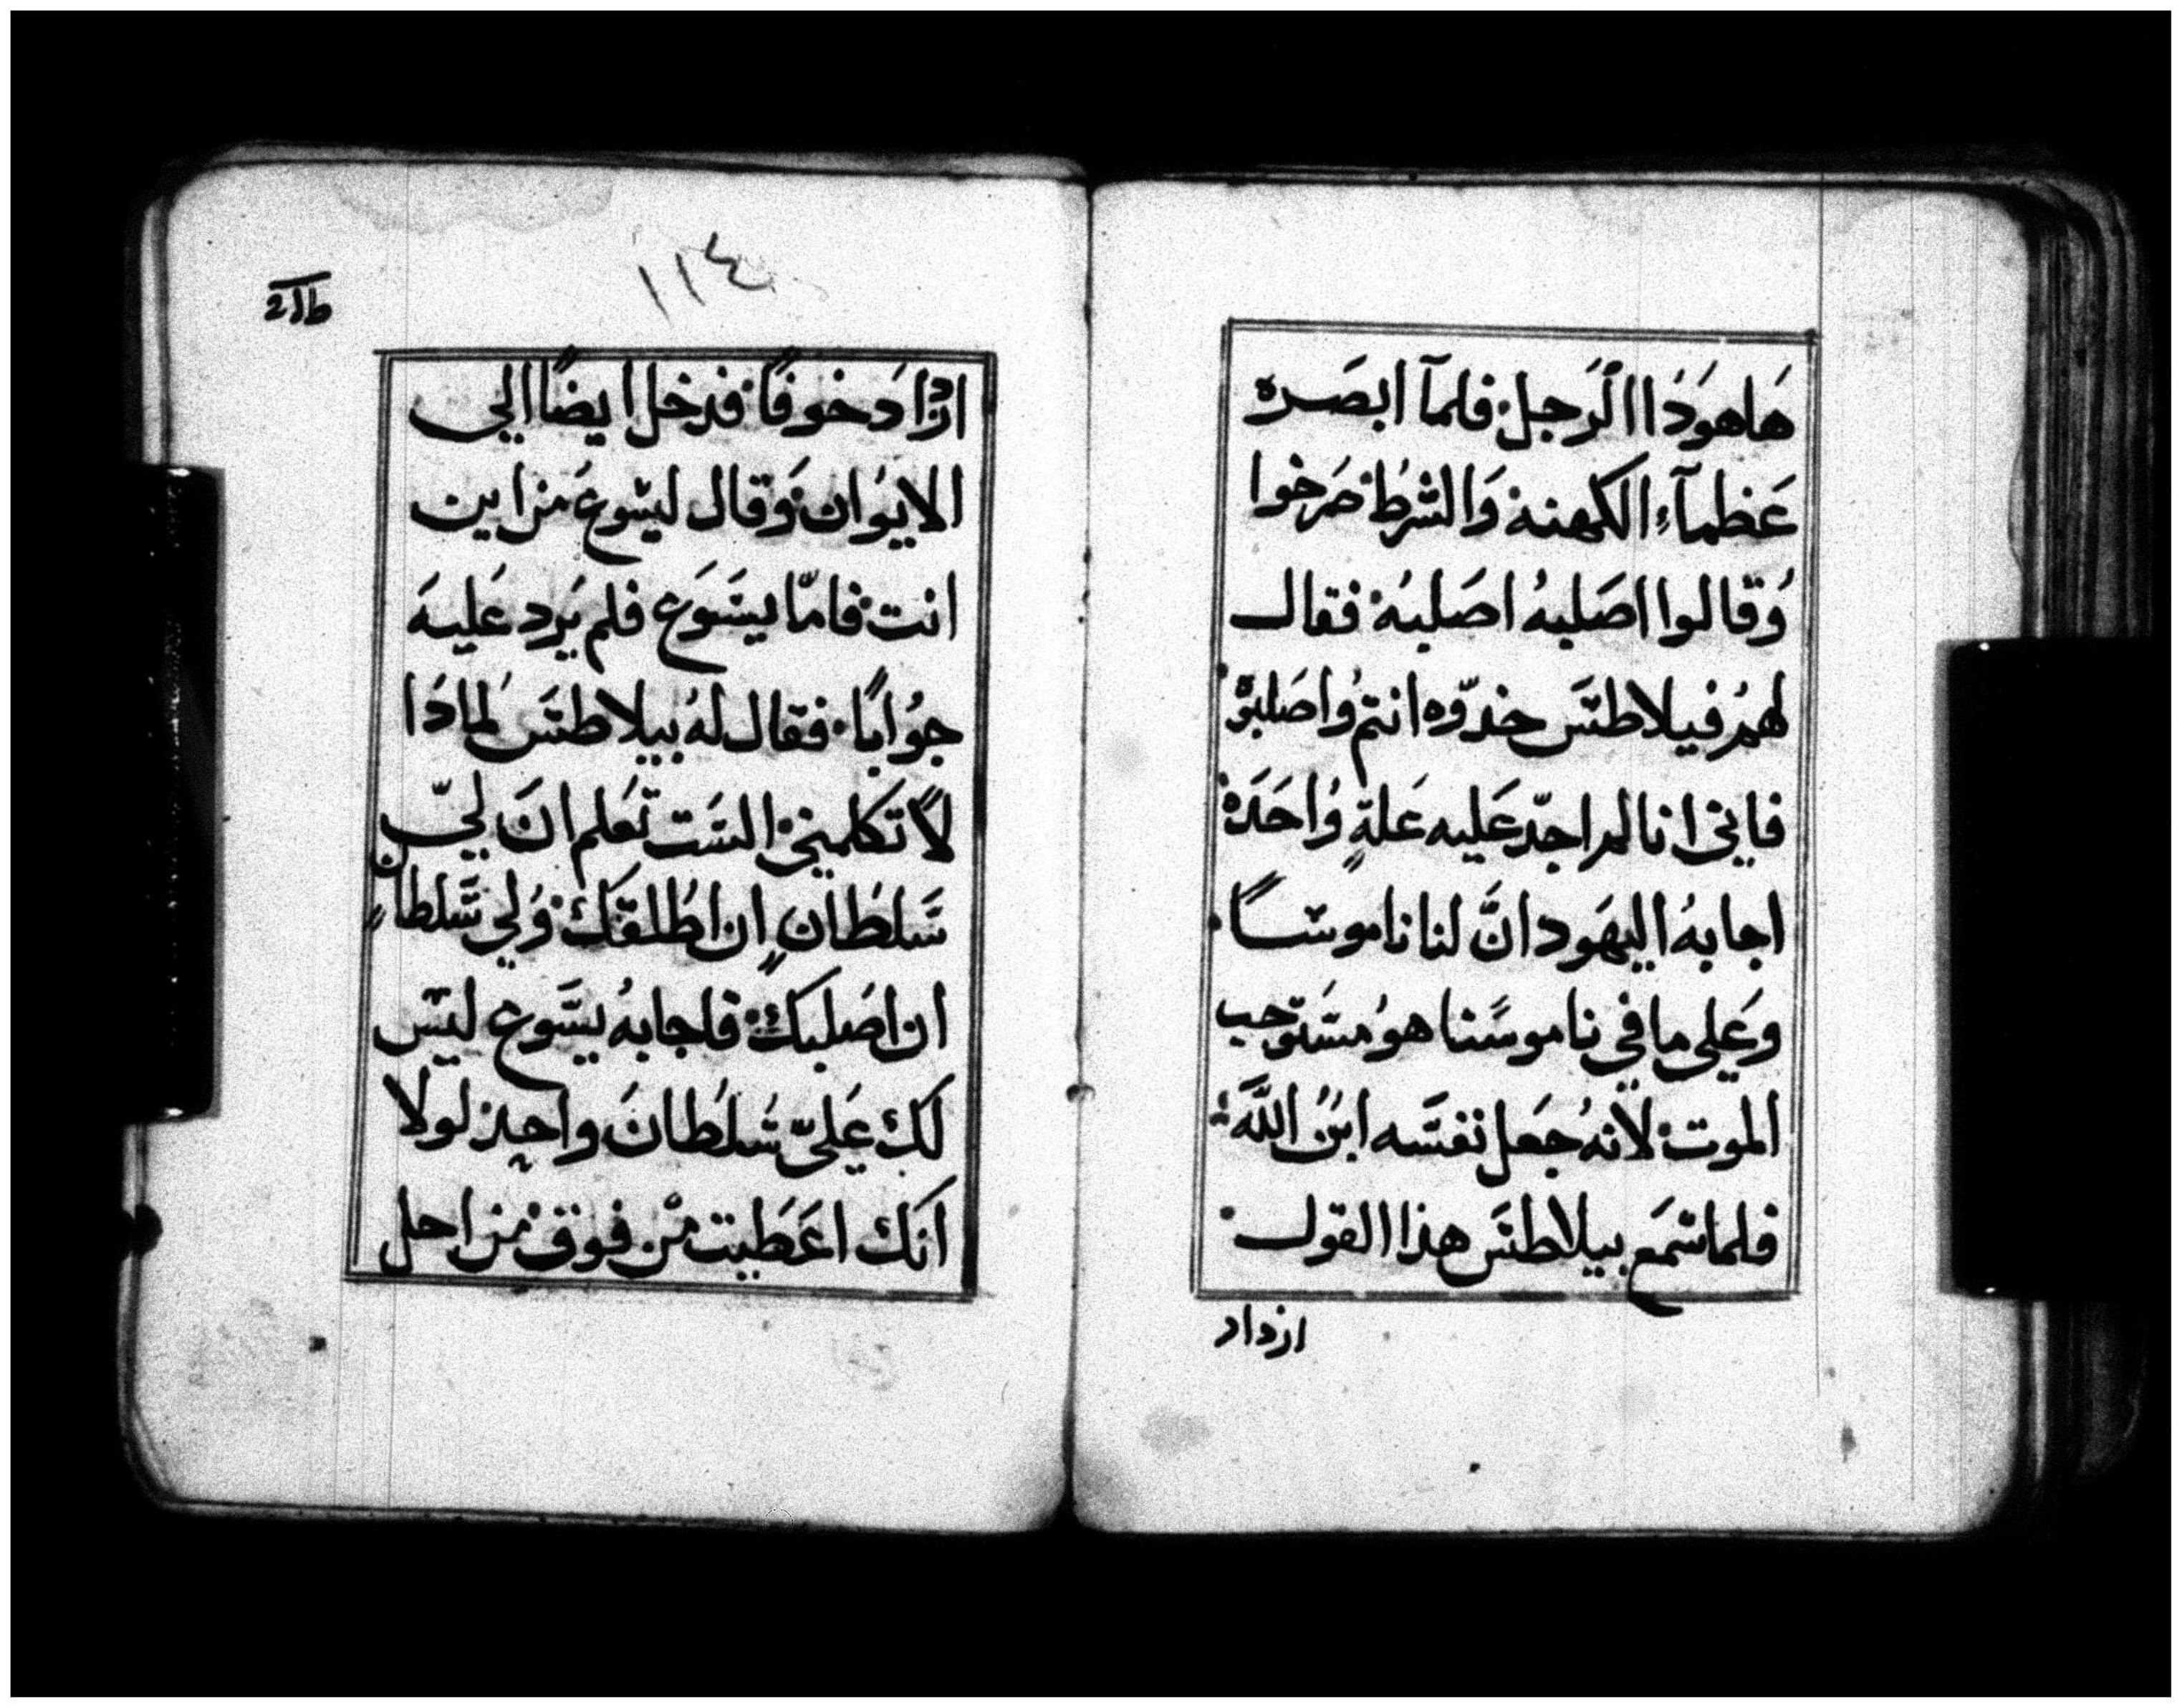 هَاهوَدَا الرَجل فلمآ ابصَره
عَظمآءِ الكهنه وَالشرُط صَرخوا
وُقالوا اصَلبهُ اصَلبهُ فقال
لهمُ فيلاطسَ خدّوه انتم وُاصَلبوُه
فاني انا لم اجدّ عَليه عَلةٍ وُاحَدَة
اجابهُ اليهَود انَّ لنا ناموسًا
وعَلي ما في ناموسَنا هوُ مسَتوَجب
الموت لانهُ جعَل نفسَه ابنُ اللَّه
فلما سَمَع بيلاطسَ هذا القول
ازداد
١١٤
ازدَادَ خوفًا فدَخل ايضًا الي
الايوُان وَقال ليسَوعَ من اين
انت فامّا يسَوَع فلم يَرد عَليهَ
جوُابًا فقال لهُ بيلاطسَ لمادَا
لا تَكلمني السَت تعَلم انَ ليّ
سَلطَان ٍان اطُلقَك وُلي سَلطانٍ
ان اصَلبك فاجابهُ يسَوع ليسَ
لك عَليّ سُلطُانَ واحدِ لولا
انَك اعَطَيت من فوق من اجل